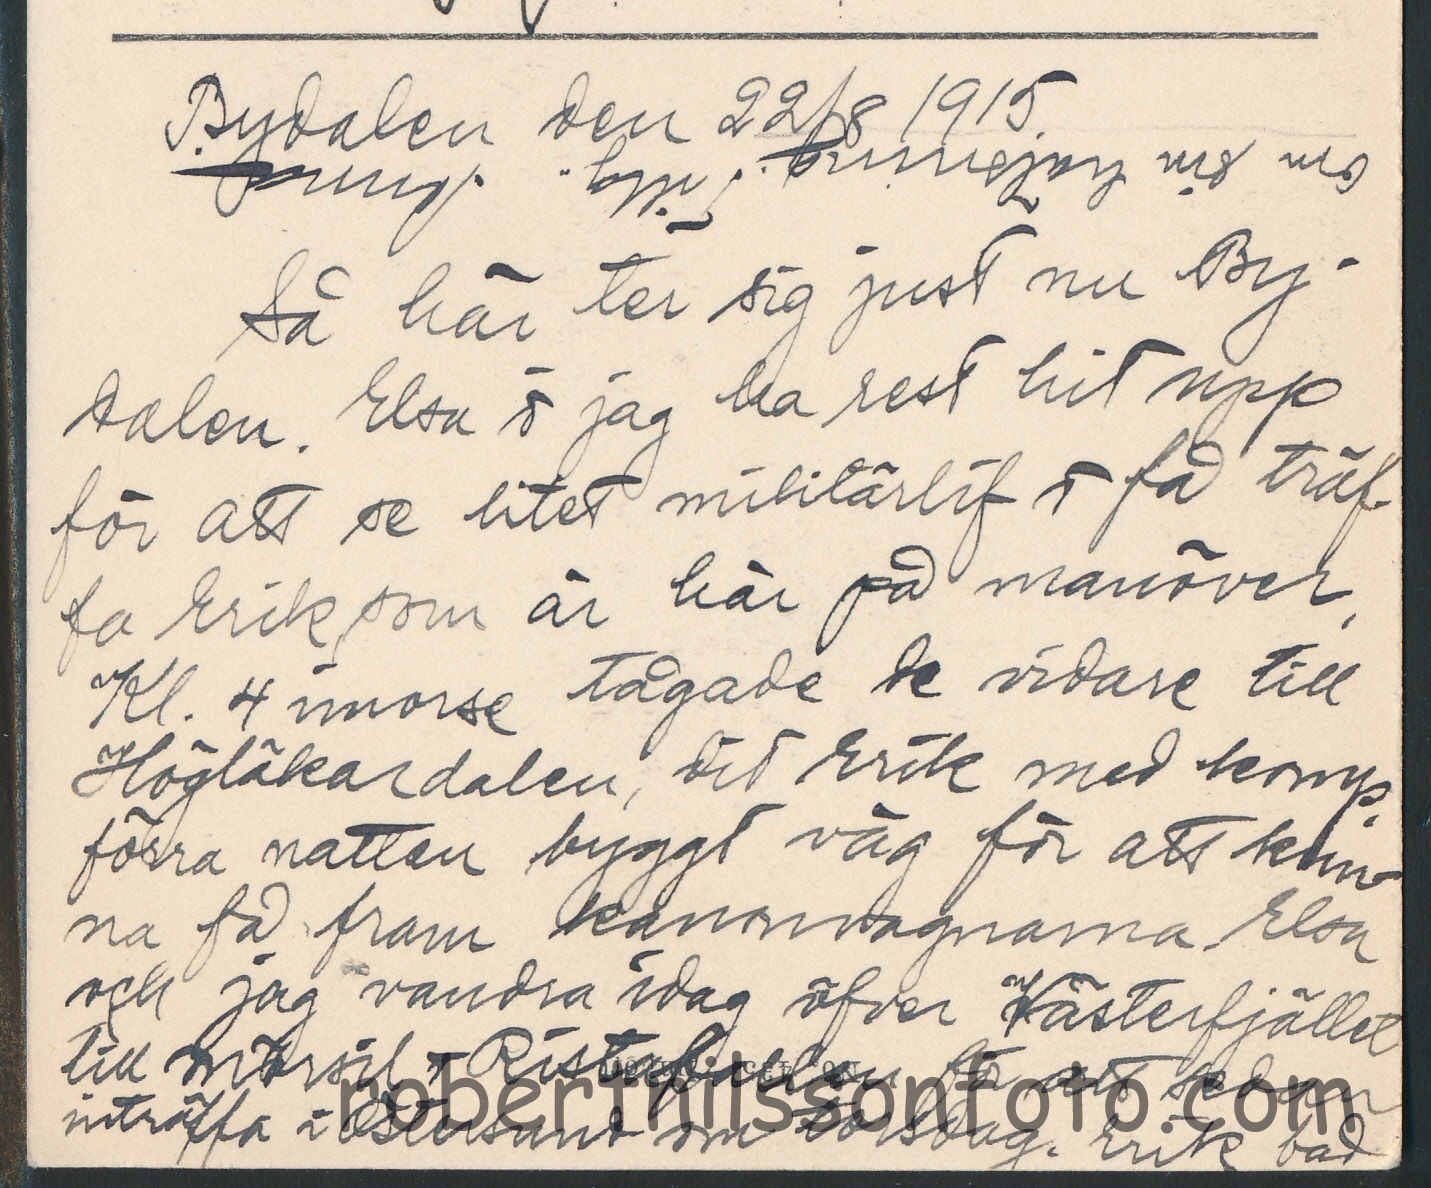 Bydalen den 22/8 1915.
om din hälsning. Tillg. Anna
Så här ter sig just nu By-
dalen. Elsa o jag ha rest hit upp
för att se litet militärlif o få träf-
fa Erik, som är här på manöver.
Kl. 4 imorse tågade de vidare till
Högläkardalen, dit Erik med komp.
förra natten byggt väg för att kun-
na få fram kanonvagnarna. Elsa
och jag vandra idag öfver Västerfjället
till Mörsil o Ristafallen för att sedan
inträffa i Östersund om torsdag. Erik bad
robertnilssonfoto.com